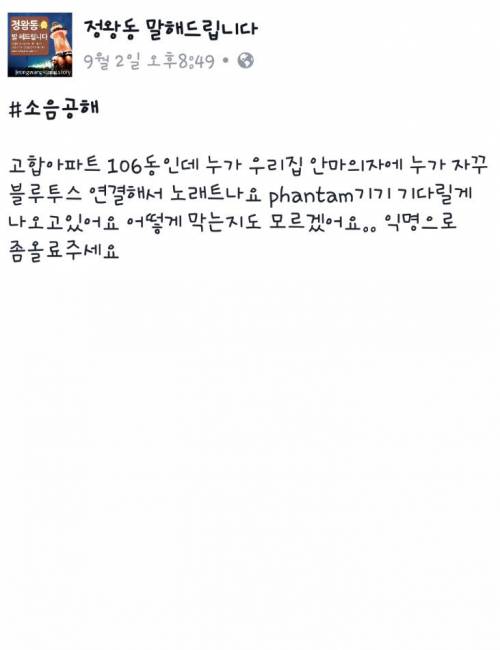 정왕동
말해드립니다
정왕동 말해드립니다
9월 2일 오후8:49 •
#소음공해
고합아파트 106동인데 누가 우리집 안마의자에 누가 자꾸
블루투스 연결해서 노래트나요 phantam기기 기다릴게
나오고있어요 어떻게 막는지도 모르겠어요.. 익명으로
좀올료주세요